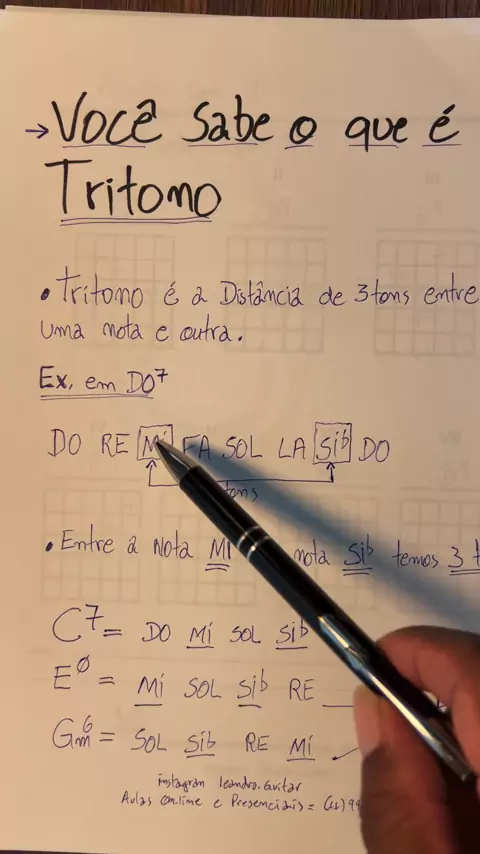 → Você Sabe o que é
Tritono
• Tritono é a Distância de 3 tons entre
uma nota e outra.
Ex. em DO7
DO RE Mi FA SOL LA Sib DO
tons
• Entre a Nota Mi nota Sib temos 3
C7 = DO Mi SOL Sib
EØ = Mi SOL Sib RE
Gm6 = SOL Sib RE Mi
instagran leandro.Guitar
Aulas on.line e Presenciais = (11) 99